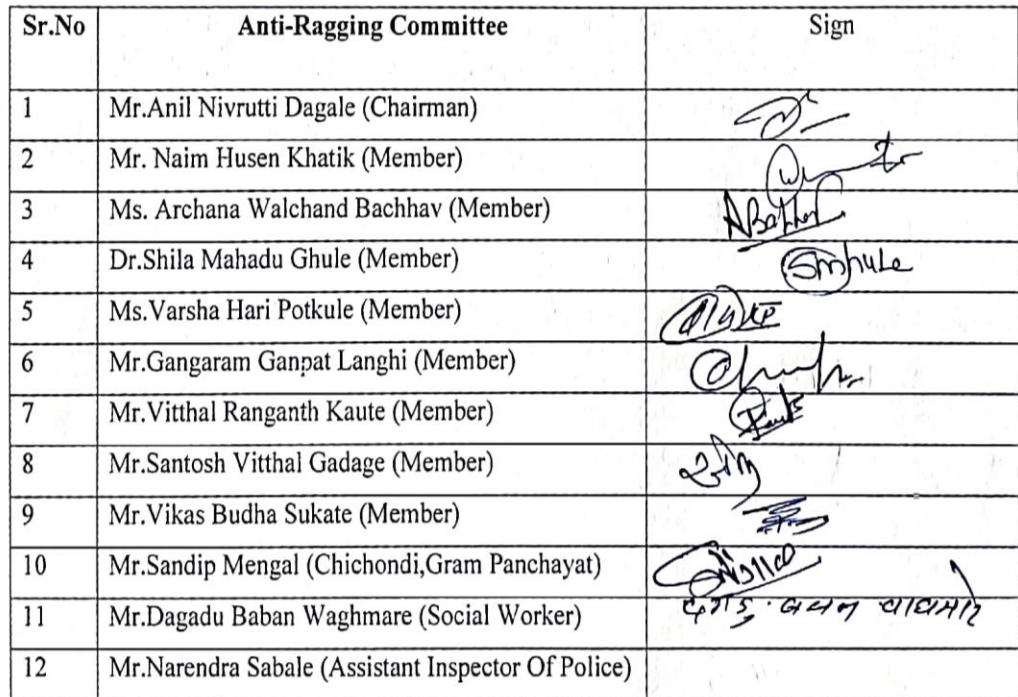 Sr.No Anti-Ragging Committee Sign
1 Mr.Anil Nivrutti Dagale (Chairman)
2 Mr. Naim Husen Khatik (Member)
3 Ms. Archana Walchand Bachhav (Member)
4 Dr.Shila Mahadu Ghule (Member)
5 Ms.Varsha Hari Potkule (Member)
6 Mr.Gangaram Ganpat Langhi (Member)
7 Mr.Vitthal Ranganth Kaute (Member)
8 Mr.Santosh Vitthal Gadage (Member)
9 Mr.Vikas Budha Sukate (Member)
10 Mr.Sandip Mengal (Chichondi,Gram Panchayat)
11 Mr.Dagadu Baban Waghmare (Social Worker) दगडु बबन वाघमारे
12 Mr.Narendra Sabale (Assistant Inspector Of Police)